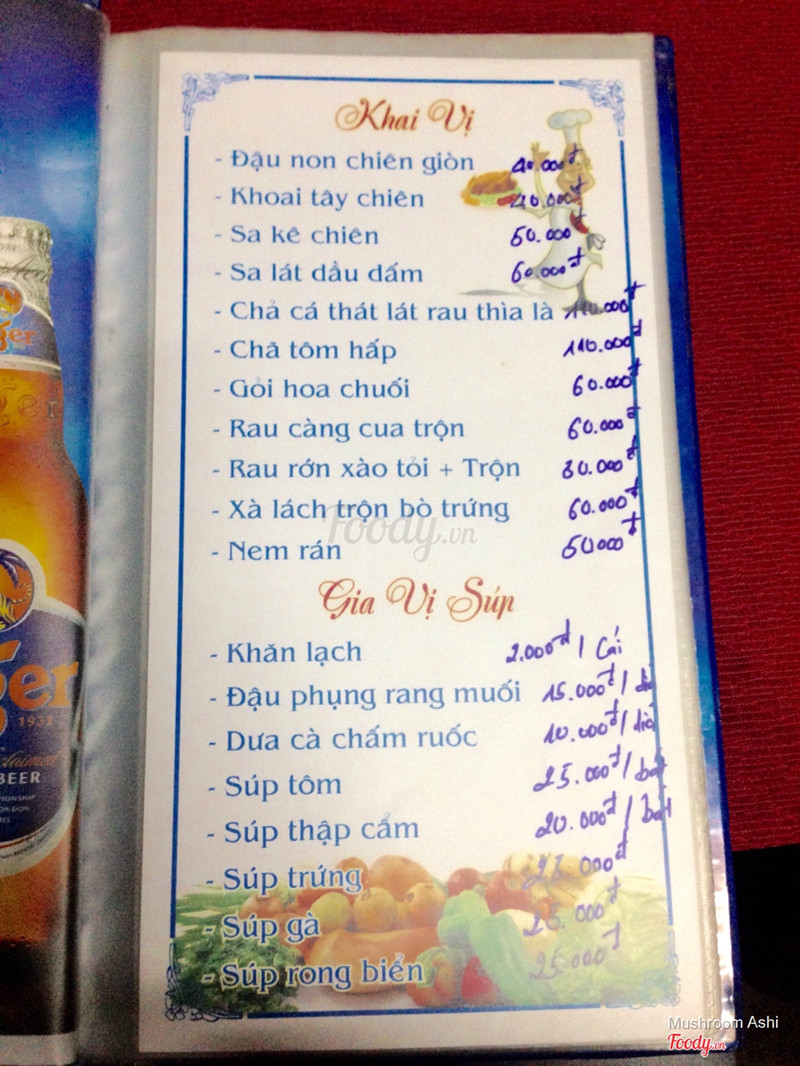 Khai Vị
- Đậu non chiên giòn 40.000đ
- Khoai tây chiên 40.000đ
- Sa kê chiên 50.000đ
- Sa lát dầu dấm 60.000đ
- Chả cá thát lát rau thìa là 110.000đ
- Chã tôm hấp 110.000đ
- Gỏi hoa chuối 60.000đ
- Rau càng cua trộn 60.000đ
- Rau rớn xào tỏi + Trộn 80.000đ
- Xà lách trộn bò trứng 60.000đ
- Nem rán 50000đ
Foody.vn
Gia Vị Súp
- Khăn lạch 2.000đ / Cái
- Đậu phụng rang muối 15.000đ /
- Dưa cà chấm ruốc 10.000đ / dĩa
- Súp tôm 25.000đ / bát
- Súp thập cẩm 20.000đ / bát
- Súp trứng 000đ
- Súp gà 25.000đ
- Súp rong biển 25.000đ
ger
1932
BEER
Mushroom Ashi
Foody.vn